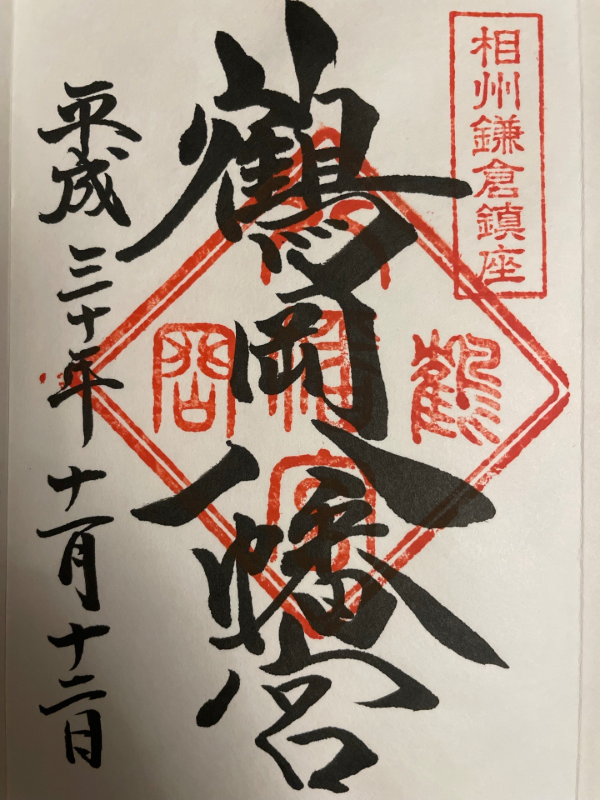 相州鎌倉鎮座
鶴岡八幡宮
平成三十年十一月十二日
鶴
岡
宮